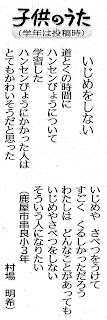 子供のうた
(学年は投稿時)
いじめをしない
道とくの時間に
ハンセンびょうについて
学習した
ハンセンびょうにかかった人は
とてもかわいそうだと思った
いじめや　さべつをうけて
すごく　くるしかっただろう
わたしは　どんなことがあっても
いじめやさべつをしない
そういう人になりたい
(鹿屋市串良小３年
村場　明希)